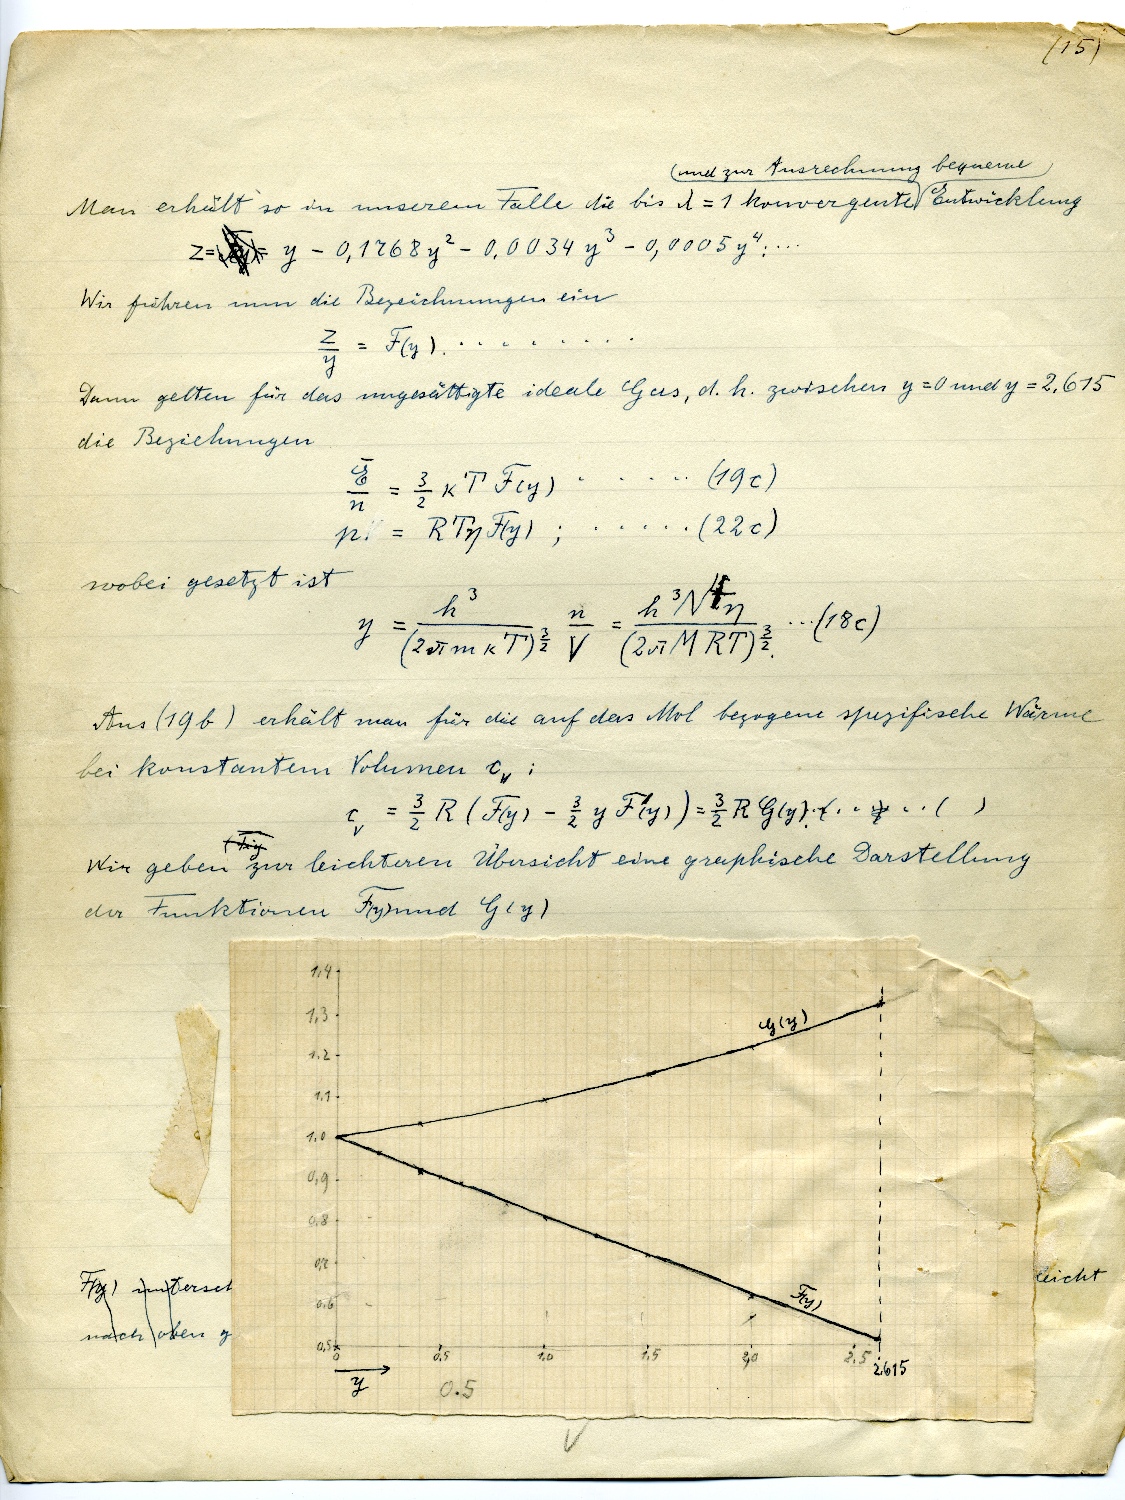 (15)
(und zur Ausrechnung bequeme)
Man erhält so in unserem Falle die bis λ = 1 konvergente Entwicklung
z = y − 0,1768 y² − 0,0034 y³ − 0,0005 y⁴; ...
Wir führen nun die Bezeichnungen ein
z/y = F(y) . . . . . . . . .
Dann gelten für das ungesättigte ideale Gas, d. h. zwischen y = 0 und y = 2,615
die Beziehungen
Ē/n = 3/2 κT F(y) . . . . . (19c)
pV = RTη F(y) ; . . . . . . (22c)
wobei gesetzt ist
y = h³/(2πmκT)^3/2 n/V = h³N⁴η/(2πMRT)^3/2 . ...(18c)
Aus (19b) erhält man für die auf das Mol bezogene spezifische Wärme
bei konstantem Volumen c_v :
c_v = 3/2 R (F(y) − 3/2 y F'(y)) = 3/2 R G(y) . . . . . ( )
Wir geben zur leichteren Übersicht eine graphische Darstellung
der Funktionen F(y) und G(y)
1,4
1,3
1,2
1,1
1,0
0,9
0,8
0,7
0,6
0,5
G(y)
F(y)
0 0,5 1,0 1,5 2,0 2,5 2.615
y
0.5
F(y) untersch
eicht
nach oben g